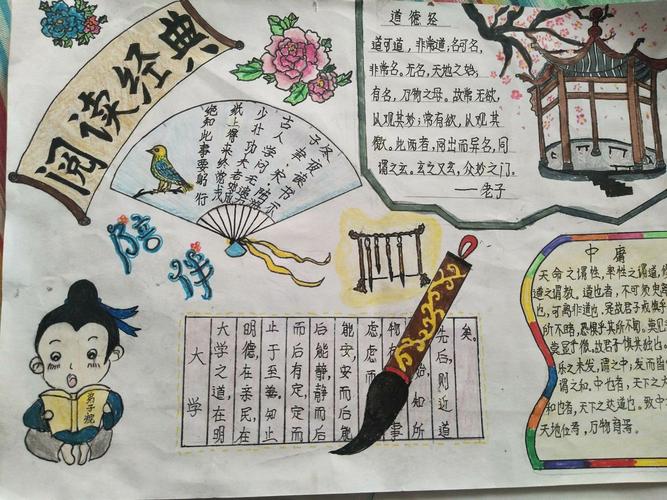 阅读经典
陪伴
冬夜读书示
子聿
古人学问无遗力
少壮功夫老始成
纸上得来终觉浅
绝知此事要躬行
道德经
道可道，非常道，名可名，
非常名。无名，天地之始，
有名，万物之母。故常无欲，
以观其妙；常有欲，以观其
徼。此两者，同出而异名，同
谓之玄。玄之又玄，众妙之门。
——老子
弟子规
大学
大学之道，在明
明德，在亲民，在
止于至善。知止
而后有定，定而
后能静，静而后
能安，安而后能
虑，虑而
物
始，知所
先后，则近道
矣。
中庸
天命之谓性，率性之谓道，
道之谓教。道也者，不可须臾
也，可离非道也。是故君子戒慎乎
所不睹，恐惧乎其所不闻。莫见
莫显乎微，故君子慎其独也。
乐之未发，谓之中，发而皆
谓之和，中也者，天下
和也者，天下之达道也。致中
天地位焉，万物育焉。